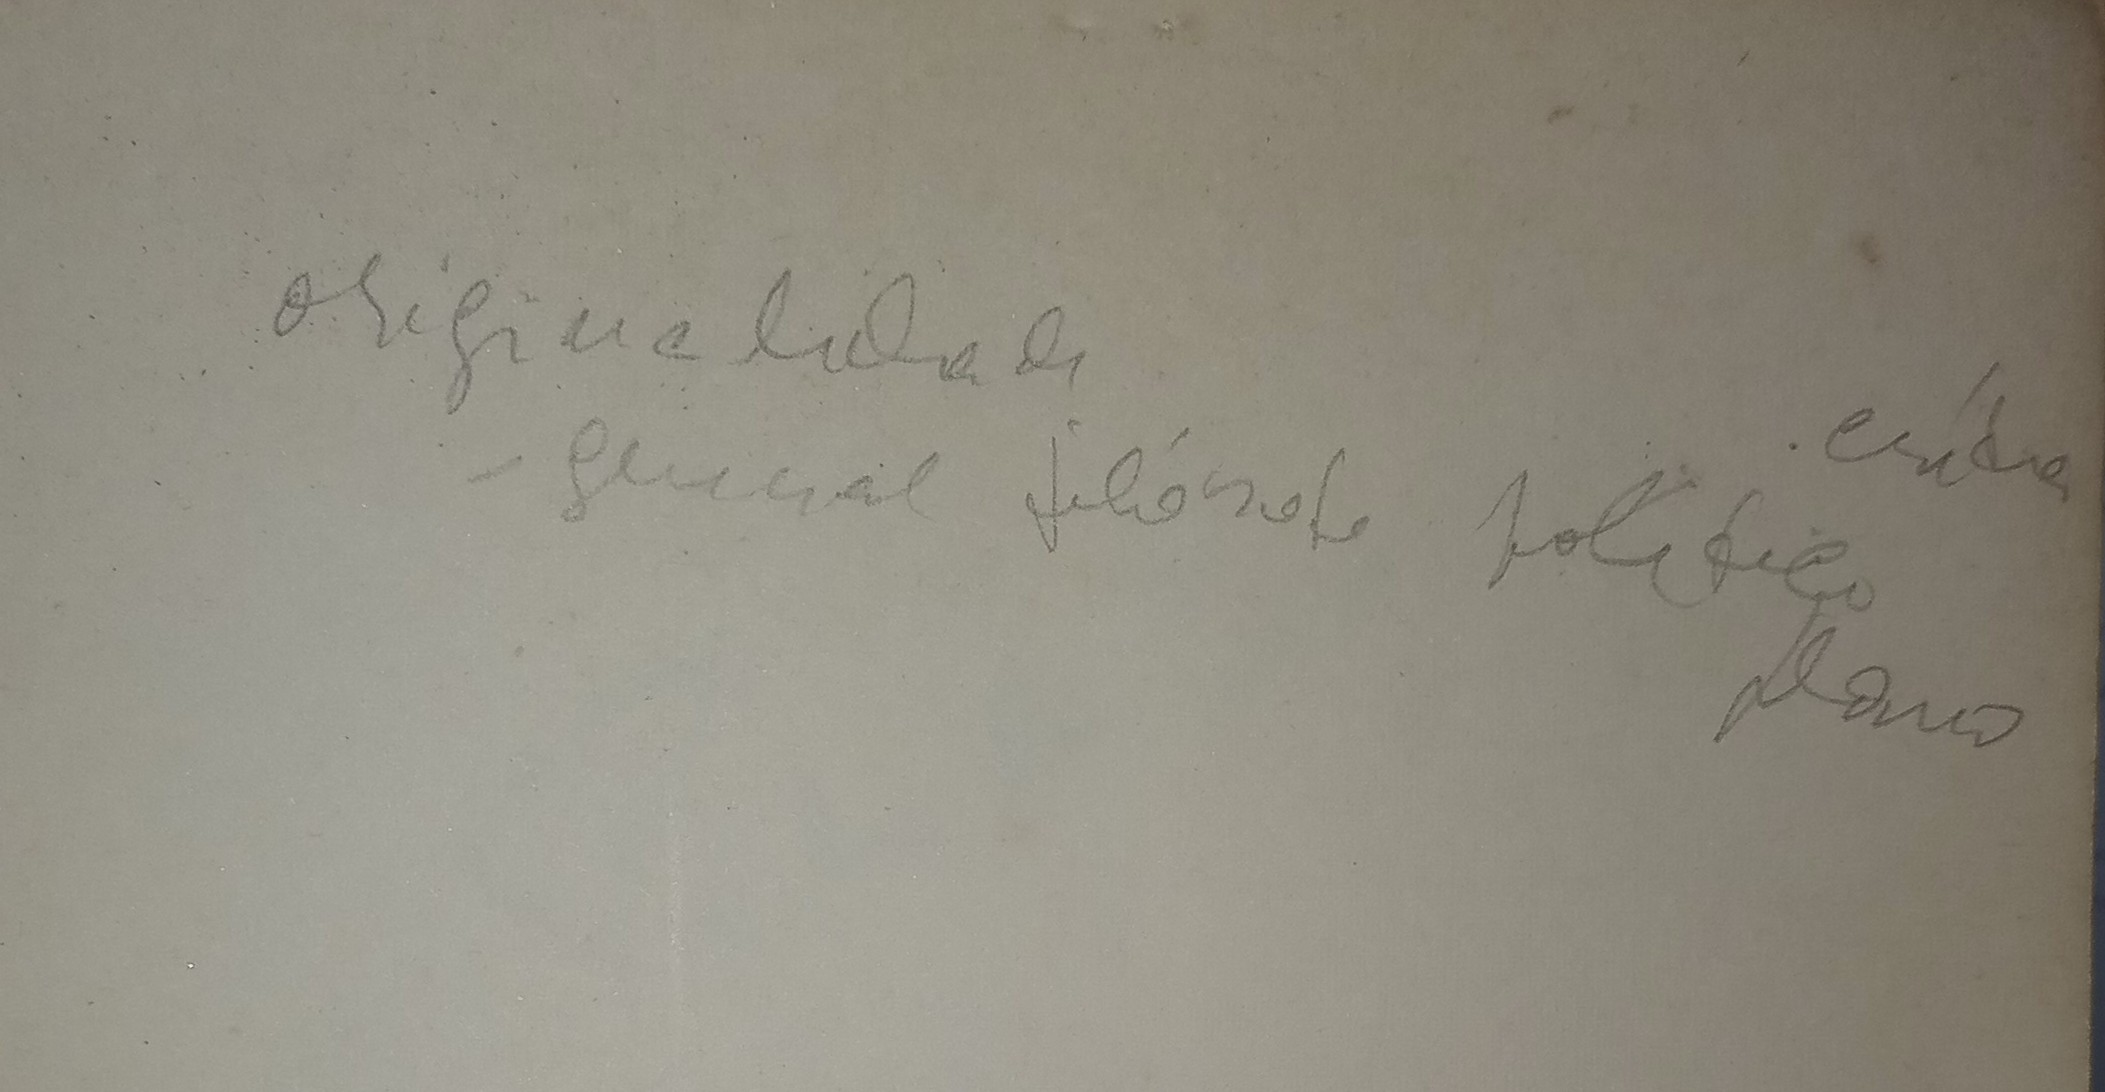 originalidade
- general filósofo político
plano